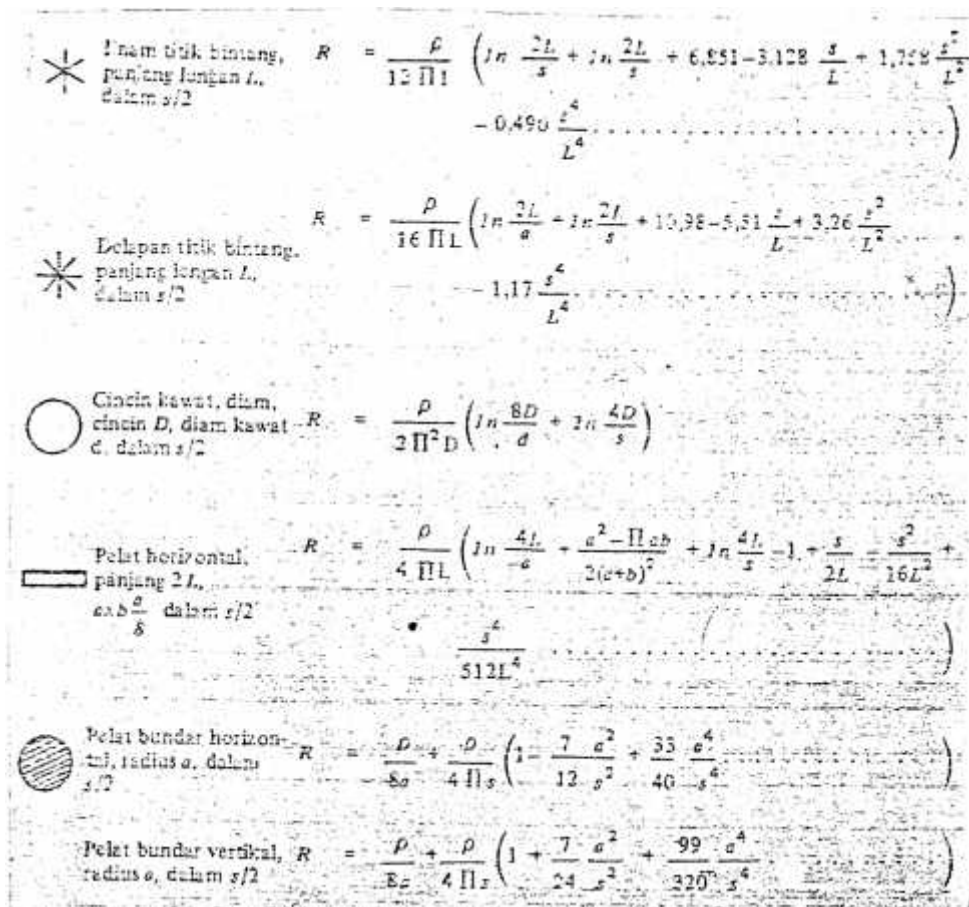 Enam titik bintang, panjang lengan L, dalam s/2
R = ρ / 12 Π L ( ln 2L/s + ln 2L/s + 6,851 – 3,128 s/L + 1,758 s²/L²
– 0,490 s⁴/L⁴ . . . . . )
Delapan titik bintang, panjang lengan L, dalam s/2
R = ρ / 16 Π L ( ln 2L/a + ln 2L/s + 10,98 – 5,51 s/L + 3,26 s²/L²
– 1,17 s⁴/L⁴ . . . . . )
Cincin kawat, diam, cincin D, diam kawat d, dalam s/2
R = ρ / 2 Π² D ( ln 8D/d + ln 4D/s )
Pelat horizontal, panjang 2 L, a×b a/8 dalam s/2
R = ρ / 4 Π L ( ln 4L/a + a² – Π ab / 2(a+b)² + ln 4L/s – 1 + s/2L – s²/16L² +
s⁴/512L⁴ . . . . . )
Pelat bundar horizon-tal, radius a, dalam s/2
R = ρ/8a + ρ/4 Π s ( 1 – 7/12 a²/s² + 33/40 a⁴/s⁴ . . . . . )
Pelat bundar vertikal, radius a, dalam s/2
R = ρ/8a + ρ/4 Π s ( 1 + 7/24 a²/s² + 99/320 a⁴/s⁴ )